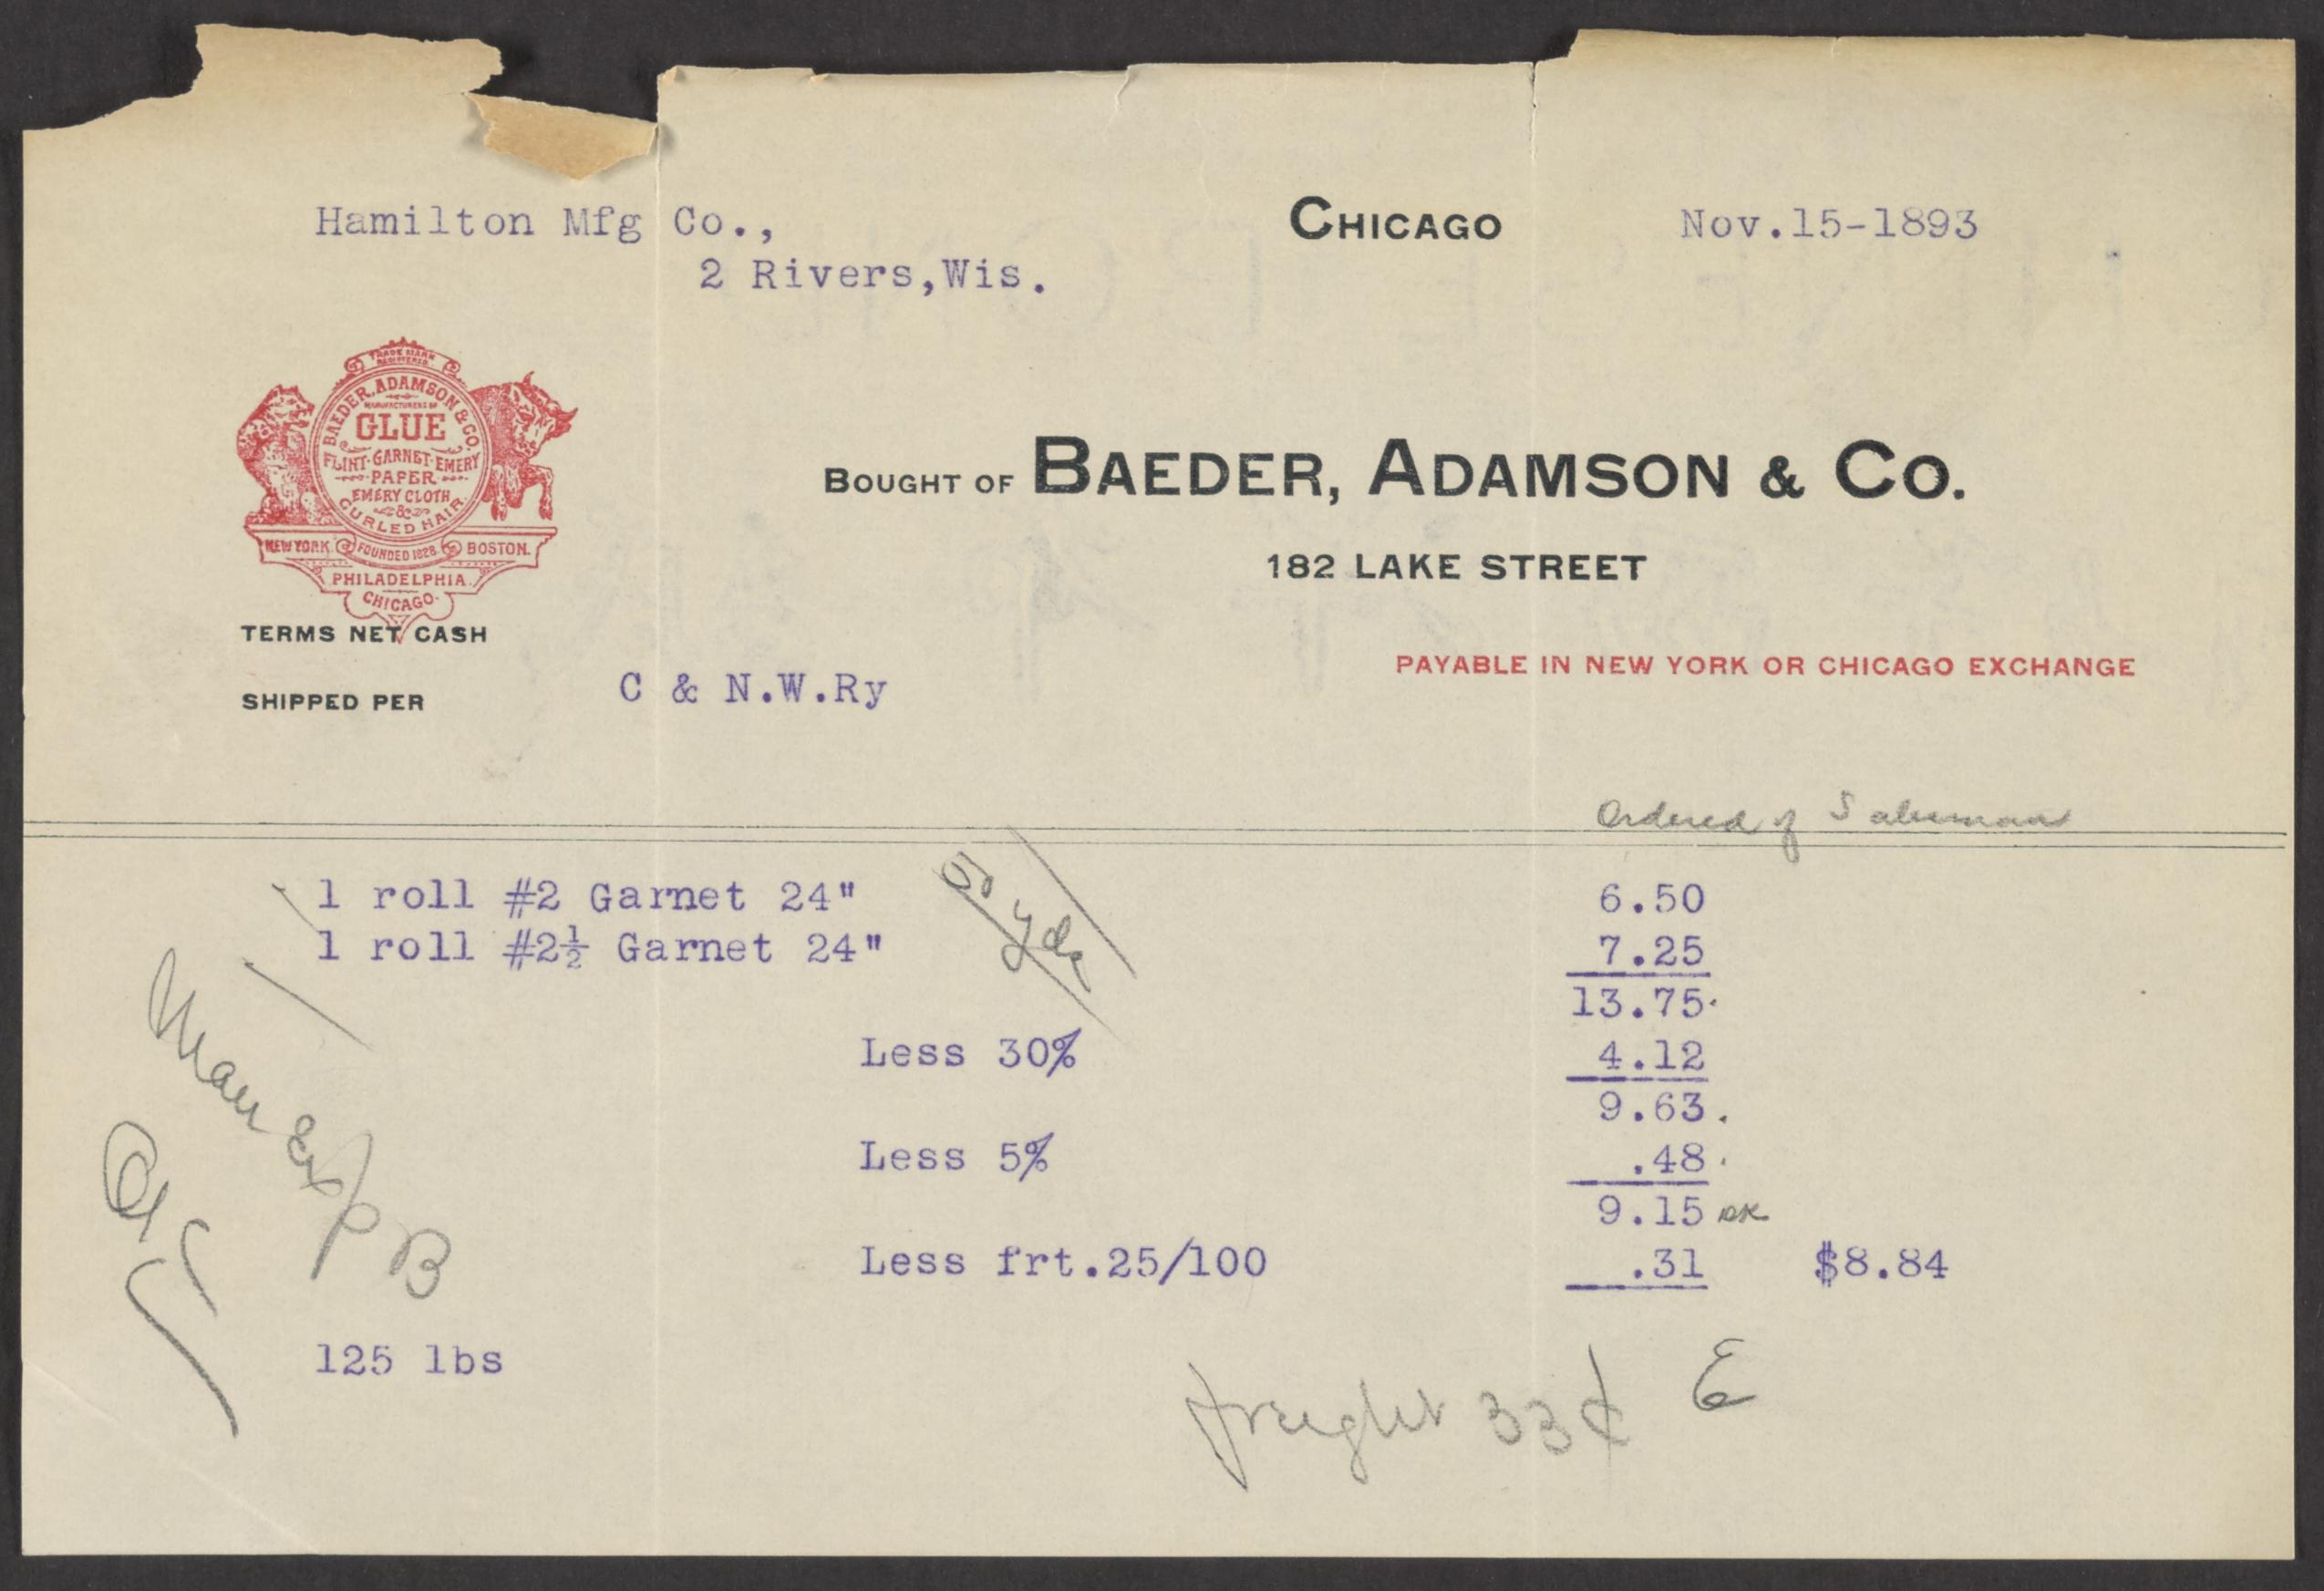 Hamilton Mfg Co.,
CHICAGO Nov.15-1893
2 Rivers,Wis.
TRADE MARK
REGISTERED
BAEDER, ADAMSON & CO.
MANUFACTURERS OF
GLUE
FLINT·GARNET·EMERY
PAPER
EMERY CLOTH
&
CURLED HAIR
NEW YORK. FOUNDED 1828 BOSTON.
PHILADELPHIA.
CHICAGO.
BOUGHT OF BAEDER, ADAMSON & CO.
182 LAKE STREET
TERMS NET CASH
PAYABLE IN NEW YORK OR CHICAGO EXCHANGE
SHIPPED PER C & N.W.Ry
Ordered of Salesman
1 roll #2 Garnet 24" 6.50
1 roll #2½ Garnet 24" 7.25
50 yds
13.75
Less 30% 4.12
9.63
Less 5% .48
9.15 OK
Less frt.25/100 .31 $8.84
Exp B
125 lbs
freight 33¢ E